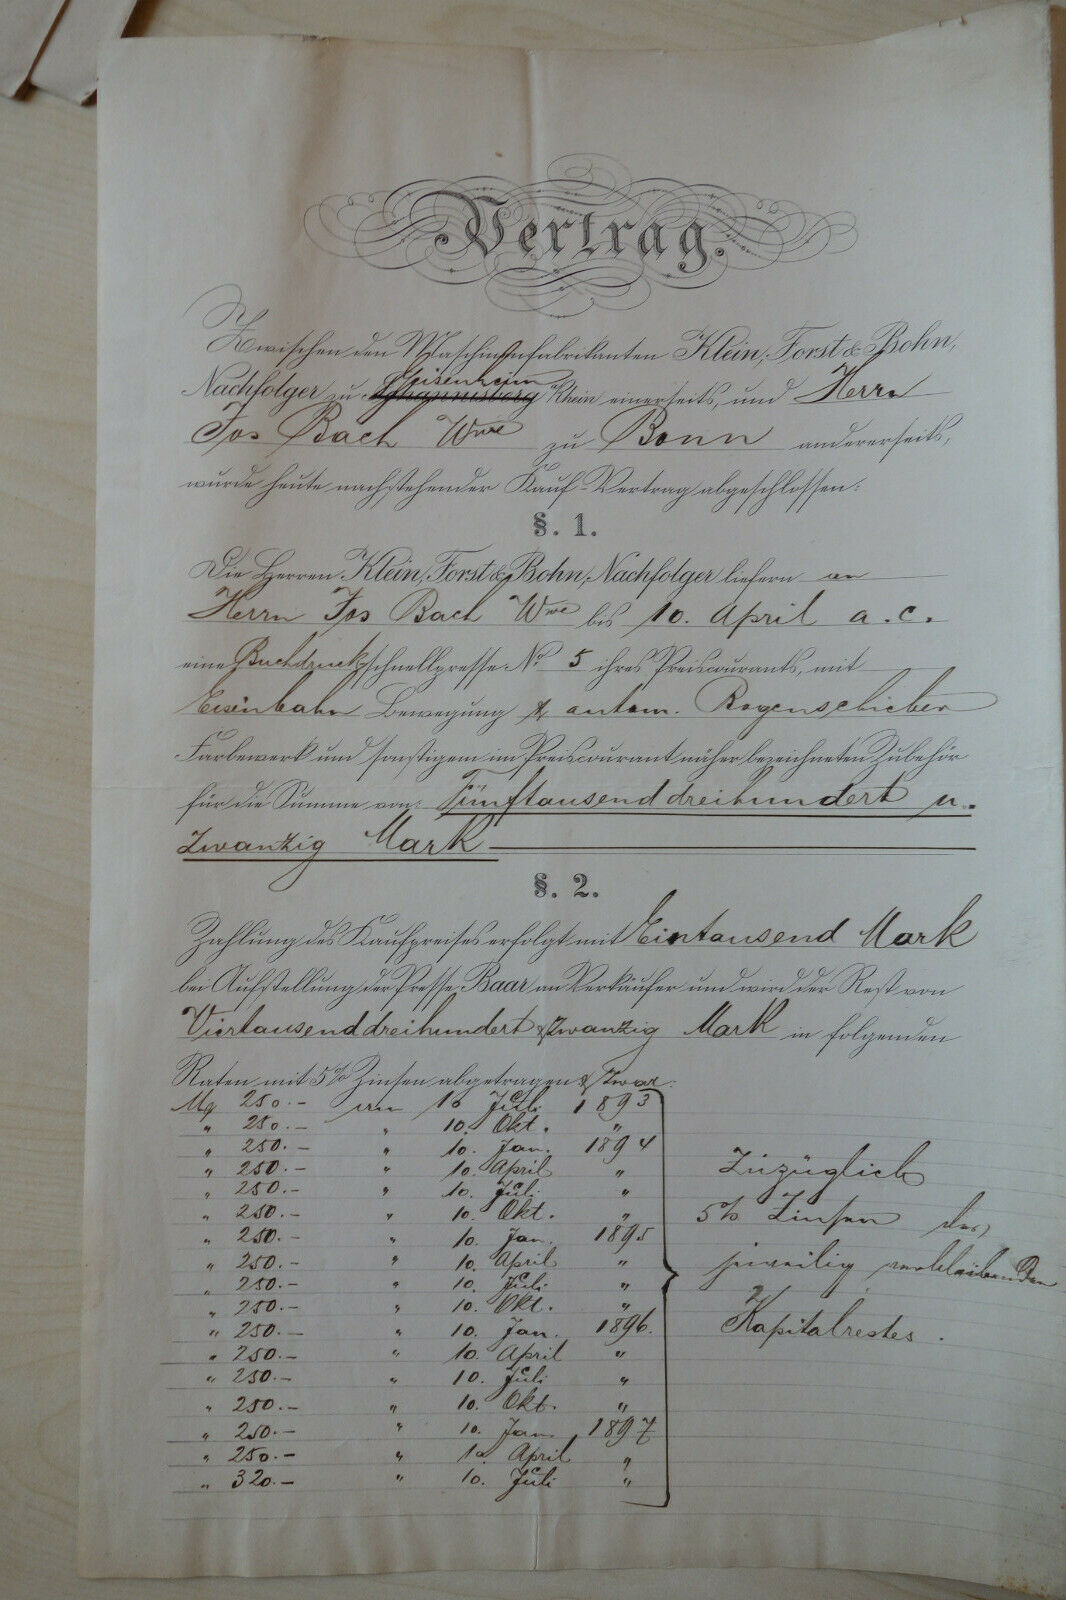 Vertrag.
Zwischen den Maschinenfabrikanten Klein, Forst & Bohn,
Geisenheim
Nachfolger zu Johannisberg a/Rhein einerseits, und Herrn
Jos Bach Wwe zu Bonn andererseits,
wurde heute nachstehender Kauf-Vertrag abgeschlossen:
§. 1.
Die Herren Klein, Forst & Bohn, Nachfolger liefern an
Herrn Jos Bach Wwe bis 10. April a.c.
eine Buchdruckschnellpresse No 5 ihres Preiscourants, mit
Eisenbahn Bewegung & autom. Bogenschieber
Farbewerk und sonstigem im Preiscourant näher bezeichneten Zubehör
für die Summe von: Fünftausenddreihundert u.
Zwanzig Mark
§. 2.
Zahlung des Kaufpreises erfolgt mit Eintausend Mark
bei Aufstellung der Presse Baar an Verkäufer und wird der Rest von
Viertausenddreihundert & Zwanzig Mark in folgenden
Raten mit 5% Zinsen abgetragen & zwar:
Mq 250.- am 10 Juli 1893
" 250.- " 10. Okt. "
" 250.- " 10. Jan. 1894
" 250.- " 10. April "
" 250.- " 10. Juli "
" 250.- " 10. Okt. "
" 250.- " 10. Jan. 1895
" 250.- " 10. April "
" 250.- " 10. Juli "
" 250.- " 10. Okt. "
" 250.- " 10. Jan. 1896.
" 250.- " 10. April "
" 250.- " 10. Juli "
" 250.- " 10. Okt. "
" 250.- " 10. Jan. 1897
" 250.- " 10 April "
" 320.- " 10. Juli "
Zuzüglich
5% Zinsen des
jeweilig verbleibenden
Kapitalrestes.